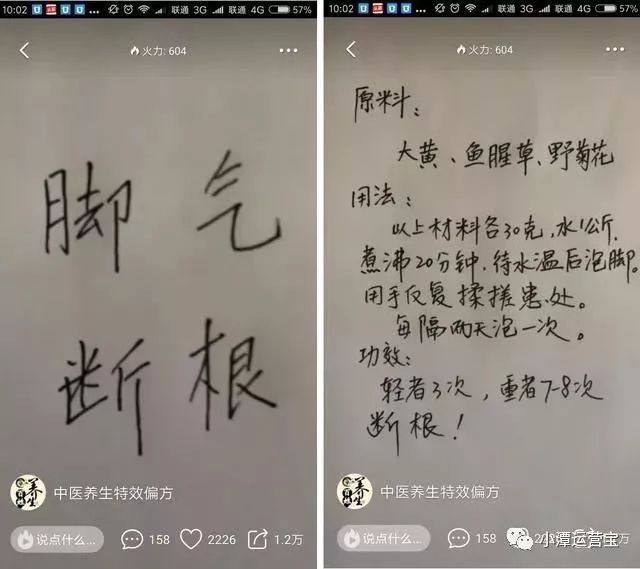 10:02
联通 3G
联通 4G
57%
火力: 604
脚气
断根
中医养生特效偏方
说点什么...
158
2226
1.2万
10:02
联通 3G
联通 4G
57%
火力: 604
原料:
大黄、鱼腥草、野菊花
用法:
以上材料各30克,水1公斤,
煮沸20分钟,待水温后泡脚。
用手反复揉搓患处。
每隔两天泡一次。
功效:
轻者3次,重者7-8次
断根!
中医养生特效偏方
说点什么...
158
小潭运营宝
万